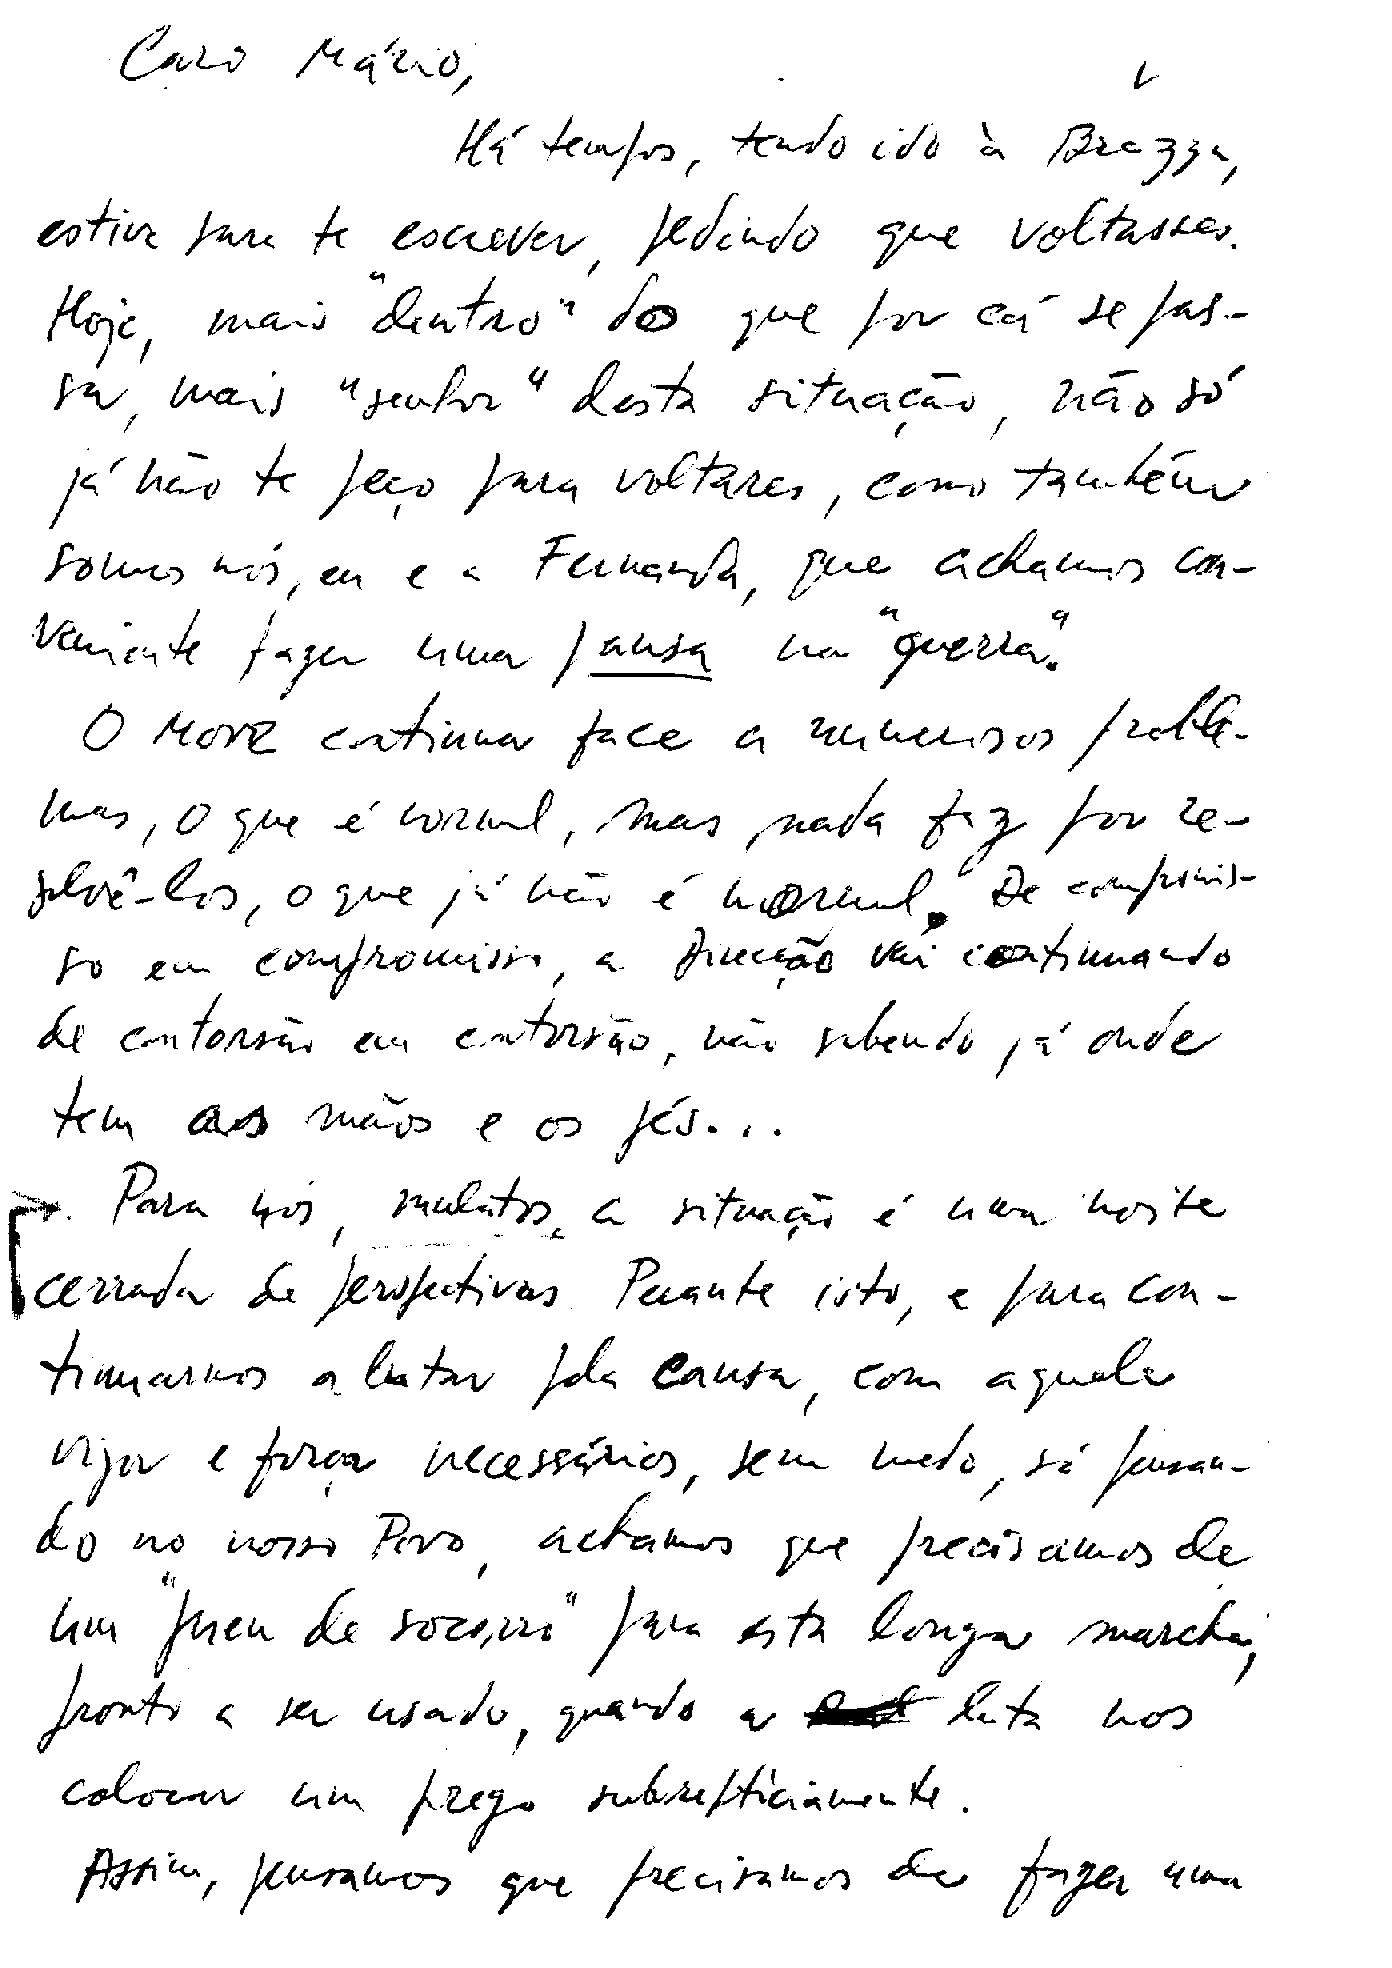 Caro Mário,
Há tempos, tendo ido à Brazza,
estive para te escrever, pedindo que voltasses.
Hoje, mais "dentro" do que por cá se pas-
sa, mais "senhor" desta situação, não só
já não te peço para voltares, como também
somos nós, eu e a Fernanda, que achamos con-
veniente fazer uma pausa na "guerra".
O Move continua face a numerosos proble-
mas, o que é normal, mas nada faz por re-
solvê-los, o que já não é normal. De compromis-
so em compromisso, a Direcção vai continuando
de contorsão em contorsão, não sabendo já onde
tem as mãos e os pés...
Para nós, mulatos, a situação é uma noite
cerrada de perspectivas. Perante isto, e para con-
tinuarmos a lutar pela causa, com aquele
vigor e força necessários, sem medo, só pensan-
do no nosso Povo, achamos que precisamos de
um "pneu de socorro" para esta longa marcha,
pronto a ser usado, quando a luta nos
colocar um prego subrepticiamente.
Assim, pensamos que precisamos de fazer uma